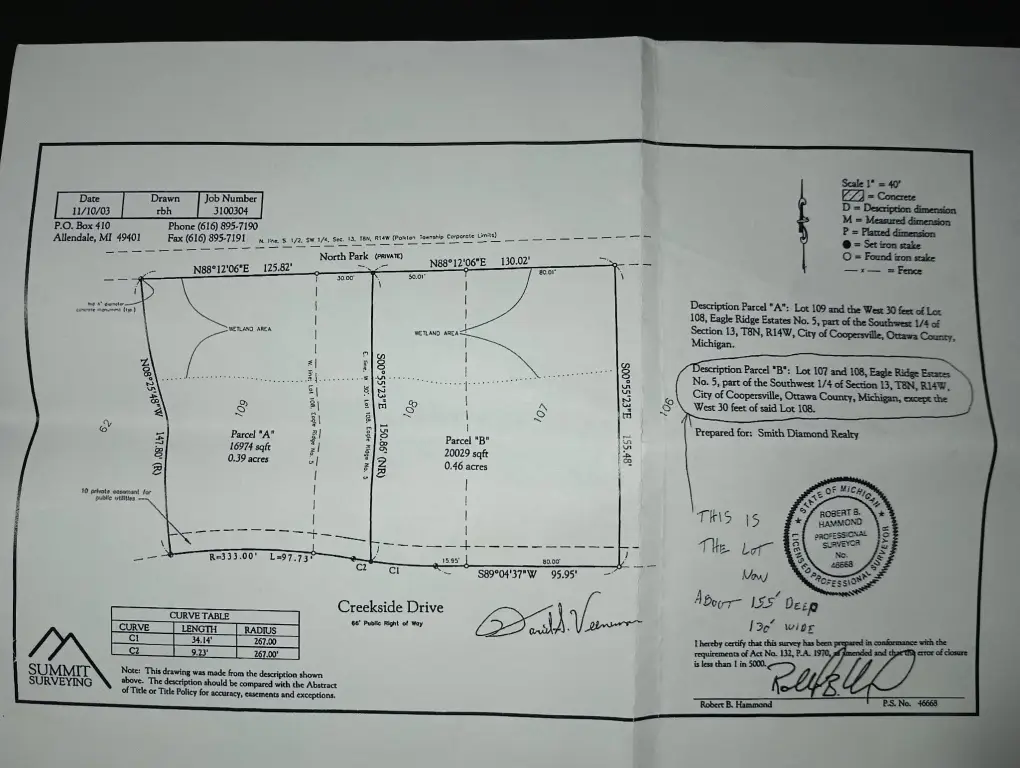 Date Drawn Job Number
11/10/03 rbh 3100304
P.O. Box 410 Phone (616) 895-7190
Allendale, MI 49401 Fax (616) 895-7191
N. line, S 1/2, SW 1/4, Sec. 13, T8N, R14W (Polkton Township Corporate Limits)
North Park (PRIVATE)
N88°12'06"E 125.82'
N88°12'06"E 130.02'
30.00'
50.01'
80.01'
concrete monument (typ.)
WETLAND AREA
WETLAND AREA
N08°25'48"W 147.80' (R)
W. line, Lot 108, Eagle Ridge No. 5
E. line, W 30', Lot 108, Eagle Ridge No. 5
S00°55'23"E 150.86' (NR)
S00°55'23"E 155.48'
62
109
108
107
106
Parcel "A"
16974 sqft
0.39 acres
Parcel "B"
20029 sqft
0.46 acres
10 private easement for
public utilities
R=333.00' L=97.73'
C2
C1
15.95'
80.00'
S89°04'37"W 95.95'
Creekside Drive
66' Public Right of Way
Daniel S. Veeneman
CURVE TABLE
CURVE LENGTH RADIUS
C1 34.14' 267.00
C2 9.23' 267.00'
SUMMIT
SURVEYING
Note: This drawing was made from the description shown
above. The description should be compared with the Abstract
of Title or Title Policy for accuracy, easements and exceptions.
Scale 1" = 40'
= Concrete
D = Description dimension
M = Measured dimension
P = Platted dimension
= Set iron stake
= Found iron stake
— x — = Fence
Description Parcel "A": Lot 109 and the West 30 feet of Lot
108, Eagle Ridge Estates No. 5, part of the Southwest 1/4 of
Section 13, T8N, R14W, City of Coopersville, Ottawa County,
Michigan.
Description Parcel "B": Lot 107 and 108, Eagle Ridge Estates
No. 5, part of the Southwest 1/4 of Section 13, T8N, R14W,
City of Coopersville, Ottawa County, Michigan, except the
West 30 feet of said Lot 108.
Prepared for: Smith Diamond Realty
THIS IS
THE LOT
NOW
ABOUT 155' DEEP
130' WIDE
STATE OF MICHIGAN
ROBERT B.
HAMMOND
PROFESSIONAL
SURVEYOR
No.
46668
LICENSED PROFESSIONAL SURVEYOR
I hereby certify that this survey has been prepared in conformance with the
requirements of Act No. 132, P.A. 1970, as amended and that the error of closure
is less than 1 in 5000.
Robert B. Hammond P.S. No. 46668